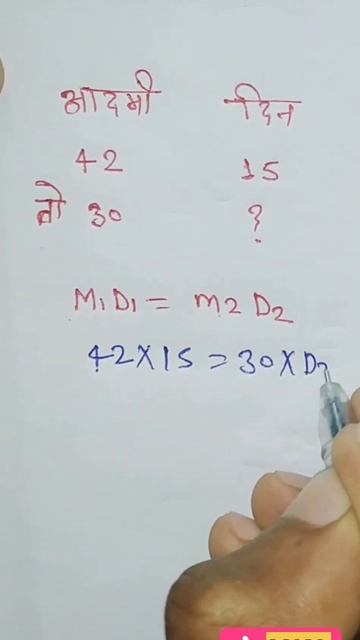 आदमी दिन
42 15
तो 30 ?
M1D1 = M2D2
42X15 = 30XD2